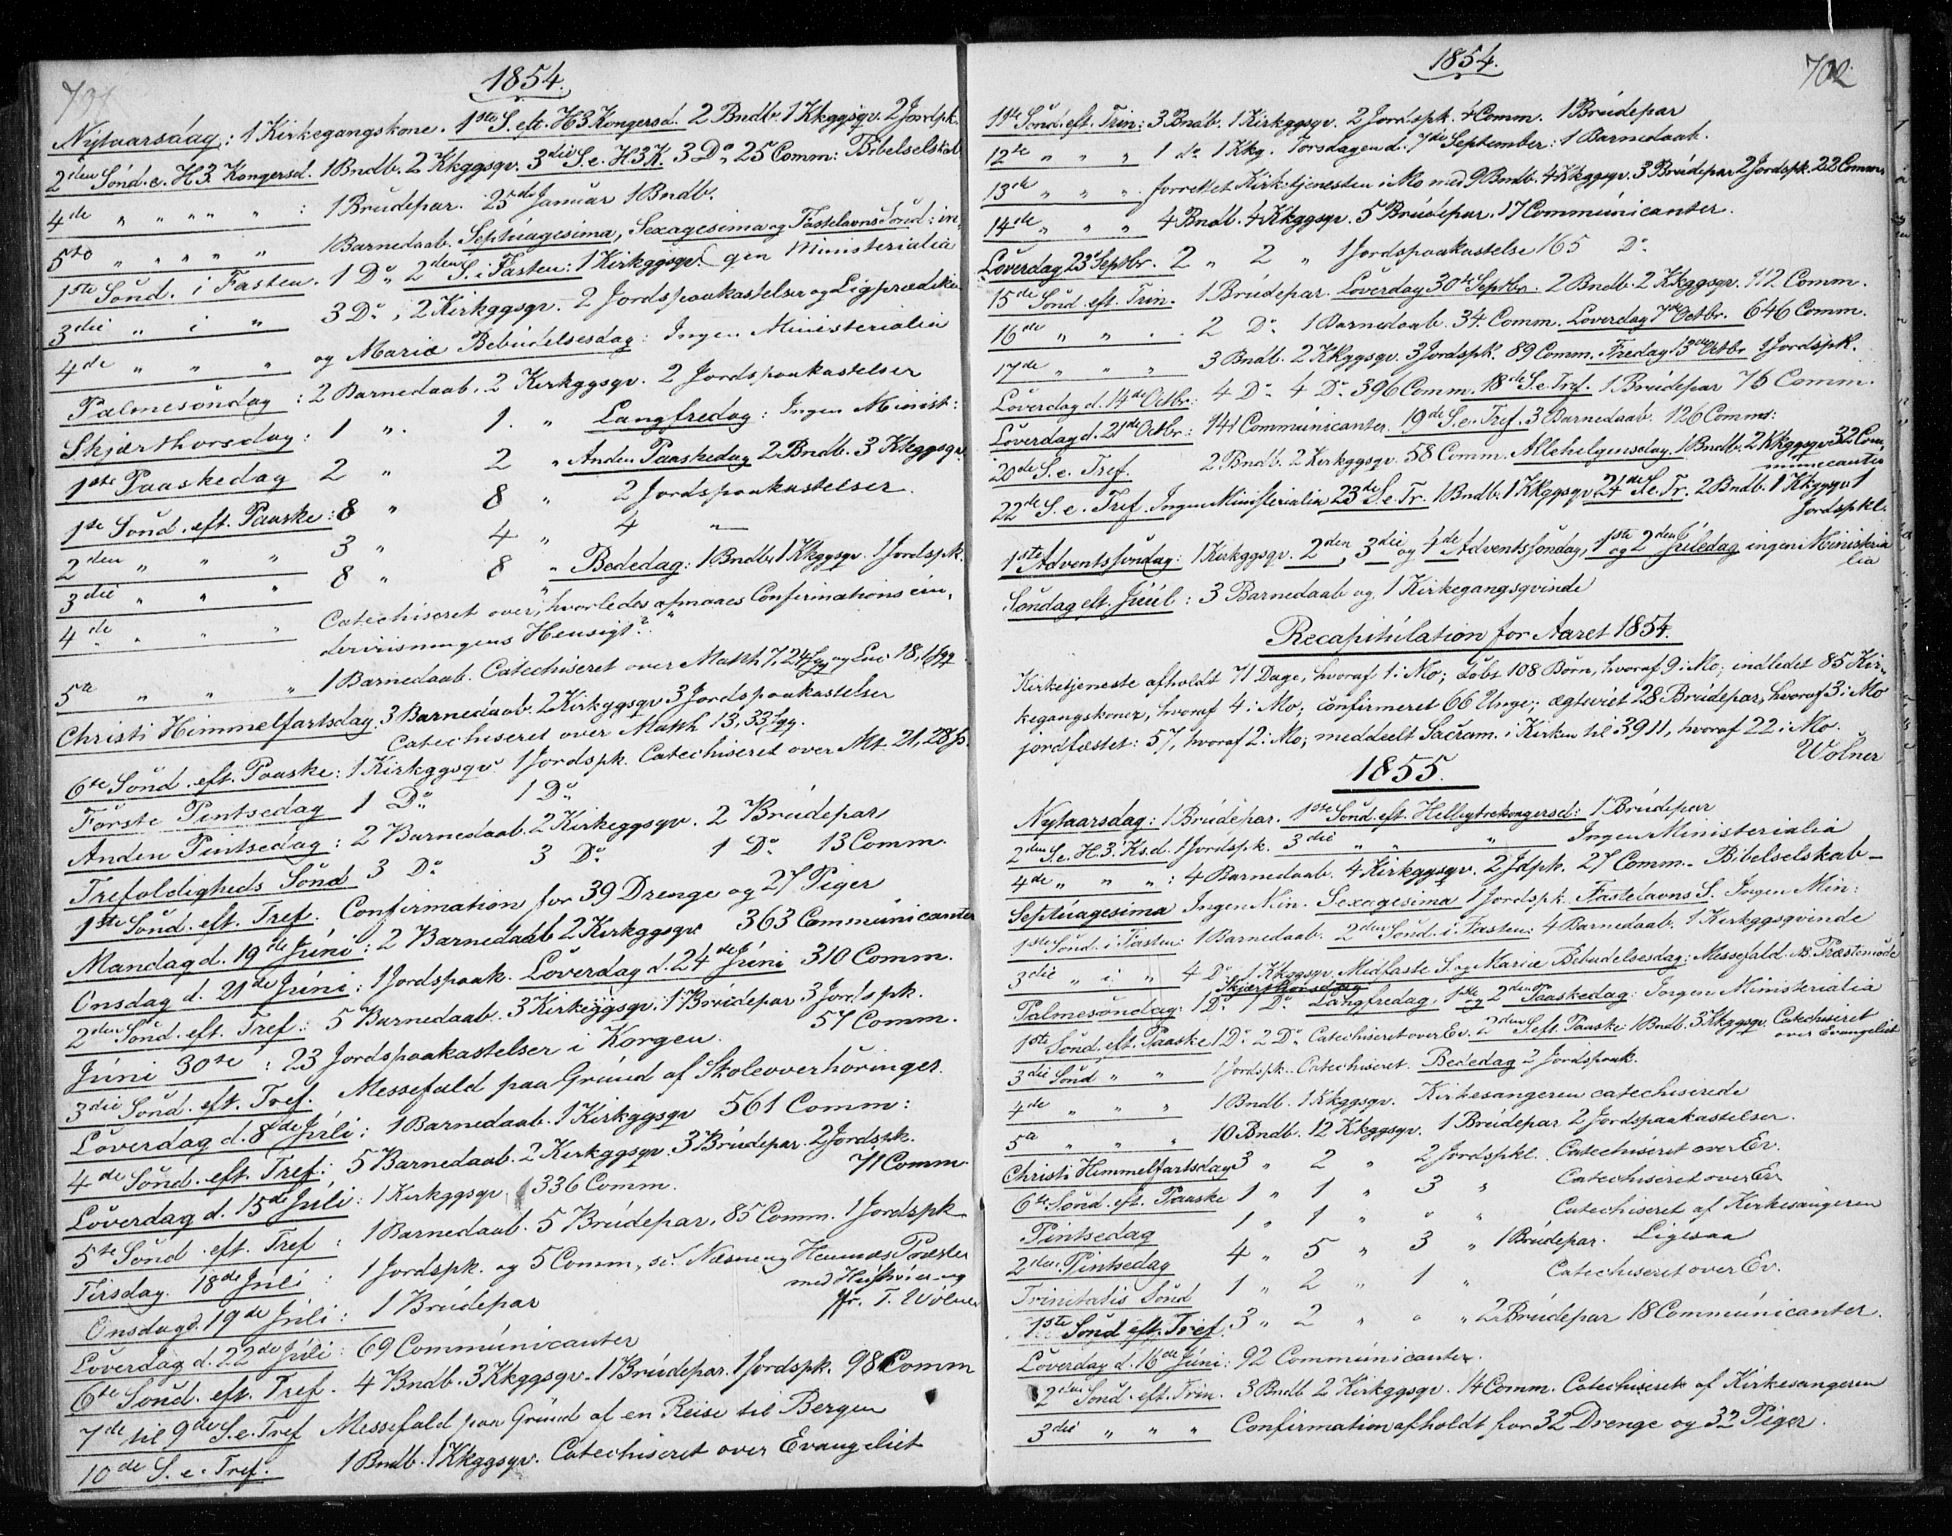 701
1854.
Nytaarsdag: 1 Kirkegangskone. 1ste S. eft. H3 Kongersd. 2 Bndb. 1 Kkggsqv. 2 Jordpk.
2den Sönd. e. H3. Kongersd. 1 Bndb. 2 Kkggsqv. 3die S. e. H3K. 3 Do 25 Comm: Bibelselskab
4de " " " " " : 1 Brudepar. 25de Januar 1 Bndb.
5te " " " " " 1 Barnedaab. Septuagesima, Sexagesima og Fastelavns Sönd: in-
1ste Sönd. i Fasten. 1 Do 2den S. i Fasten: 1 Kirkggsqv. (gen Ministerialia
3die " i " 3 Do, 2 Kirkggsqv. 2 Jordspaakastelser og Ligprædiken
4de " " " og Mariæ Bebudelsesdag: Ingen Ministerialia
Palmesöndag: 2 Barnedaab. 2 Kirkggsqv. 2 Jordspaakastelser
Skjærthorsdag: 1 " 1. " Langfredag: Ingen Minist:
1ste Paaskedag 2 " 2 " Anden Paaskedag 2 Bndb. 3 Kkggsqv.
1ste Sönd. eft. Paaske: 8 " 8 " 2 Jordspaakastelser.
2den " " " 3 " 4 " 4 "
3die " " " 8 " 8 " Bededag: 1 Bndb. 1 Kkggsqv. 1 Jordspk.
4de " " " Catechiseret over, hvorledes opnaaes Confirmationsun-
dervisningens Hensigt?
5te " " " 1 Barnedaab. Catechiseret over Matth 7, 24 fgg og Luc 18, 1 fgg
Christi Himmelfartsdag: 3 Barnedaab. 2 Kirkggsqv 3 Jordspaakastelser
Catechiseret over Matth 13, 33 fgg.
6te Sönd. eft. Paaske: 1 Kirkggsqv. 1 Jordspk. Catechiseret over Mt. 21, 28 f.
Förste Pintsedag 1 Do. 1 Do
Anden Pintsedag: 2 Barnedaab. 2 Kirkeggsqv. 2 Brudepar
Trefoldigheds Sönd 3 Do 3 Do 1 Do 13 Comm.
1ste Sönd. eft. Tref. Confirmation for 39 Drenge og 27 Piger
Mandag d. 19de Júni: 2 Barnedaab 2 Kirkggsqv 363 Communicanter
Onsdag d. 21de Júni: 1 Jordspaak. Löverdag d. 24de Júni 310 Comm.
2den Sönd. eft. Tref: 5 Barnedaab. 3 Kirkeggsqv. 1 Brudepar 3 Jordspk.
57 Comm.
Júni 30te: 23 Jordspaakastelser i Korgen.
3die Sönd. eft. Tref. Messefald paa Grund af Skoleoverhöringer.
Löverdag d. 8de Júli: 1 Barnedaab. 1 Kirkggsqv 561 Comm:
4de Sönd. eft. Tref: 5 Barnedaab. 2 Kirkggsqv. 3 Brudepar. 2 Jordspk.
71 Comm.
Löverdag d. 15de Júli: 1 Kirkggsqv 336 Comm.
5te Sönd. eft. Tref: 1 Barnedaab. 5 Brudepar. 85 Comm. 1 Jordspk
Tirsdag. 18de Júli: 1 Jordspk. og 5 Comm, sc. Næsne og Hemnæs Præster
med Hustruer og
Onsdag d. 19de Júli: 1 Brudepar fr. T. Wölner
Löverdag d. 22de Júli: 69 Communicanter
6te Sönd. eft. Tref. 4 Bndb. 3 Kkggsqv. 1 Brudepar. 1 Jordspk. 98 Comm
7de til 9de S. e. Tref Messefald paa Grund af en Reise til Bergen
10de S. e. Tref. 1 Bndb. 1 Kkggsqv. Catechiseret over Evangeliet
1854.
702
11te Sönd. eft. Trin: 3 Bndb. 1 Kirkggsqv. 2 Jordspk. 4 Comm. 1 Brudepar
12te " " " 1 do 1 Kkg. Torsdagen d. 7de September: 1 Barnedaab.
13de " " " forrettet Kirketjenesten i Mo med 9 Bndb. 4 Kkggsqv. 3 Brudepar 2 Jordspk. 22 Comm
14de " " " 4 Bndb. 4 Kkggsqv. 5 Brudepar. 17 Communicanter.
Löverdag 23 Septbr. 2 " 2 " 1 Jordspaakastelse 165 Do
15de Sönd eft. Trin. 1 Brudepar. Löverdag 30te Septbr: 2 Bndb. 2 Kkggsqv. 112 Comm.
16de " " " 2 Do 1 Barnedaab. 34. Comm. Löverdag 7de Octbr. 646 Comm.
17de " " " 3 Bndb. 2 Kkggsqv. 3 Jordspk. 89 Comm. Fredag 13de Octbr 1 Jordspk.
Löverdag d. 14de Octbr: 4 Do 4 Do 396 Comm. 18de S. e Tref. 1 Brudepar 75 Comm.
Löverdag d. 21de Octbr: 141 Communicanter. 19de S. e. Tref. 3 Barnedaab. 126 Comms:
20de S. e. Tref. 2 Bndb. 2 Kirkggsqv. 58 Comm. Allehelgensdag. 1 Bndb. 2 Kkggsqv 32 Com-
municanter
22de S. e. Tref Ingen Ministerialia 23de S. e. Tr. 1 Bndb. 1 Kkggsqv 24de S. e. Tr. 2 Bndb. 1 Kkggsqv 1
Jordspkl.
1ste Adventssöndag: 1 Kirkggsqv. 2den, 3die og 4de Adventssöndag, 1ste og 2den Juledag ingen Ministeria
lia
Söndag eft. Juul: 3 Barnedaab og 1 Kirkegangsqvinde
Recapitulation for Aaret 1854.
Kirketjeneste afholdt 71 Dage, hvoraf 1 i Mo; döbt 108 Börn, hvoraf 9 i Mo; indledet 85 Kir-
kegangskoner, hvoraf 4 i Mo; confirmeret 66 Unge; ægteviet 28 Brudepar, hvoraf 3 i Mo
jordfæstet: 57, hvoraf 2 i Mo; meddeelt Sacram. i Kirken til 3911, hvoraf 22 i Mo.
Wölner
1855.
Nytaarsdag: 1 Brudepar. 1ste Sönd. eft. Helligtrekongersd: 1 Brudepar
2den S. e. H. 3. Ks.d. 1 Jordspk. 3die " " " Ingen Ministerialia
4de " " " : 4 Barnedaab. 4 Kirkggsqv. 2 Jdspk. 27 Comm. Bibelselskab
Septuagesima Ingen Min. Sexagesima 1 Jordspk. Fastelavns S. Ingen Min:
1ste Sönd. i Fasten: 1 Barnedaab. 2den Sönd. i Fasten: 4 Barnedaab. 1 Kirkggsqvinde
3die " i " 4 Do 1 Kkggsqv. Midfaste S. og Mariæ Bebudelsesdag: Messefald. NB. Præstemöde
Skjærthorsdag
Palmesöndag: 1 Do 1 Do Langfredag, 1ste og 2den Paaskedag: Ingen Ministerialia
1ste Sönd eft. Paaske 1 Do 2 Do Catechiseret over Ev. 2den S. eft. Paaske 1 Bndb. 3 Kkggsqv. Catechiseret
over Evangeliet
3die Sönd " " 1 Jordspk. Catechiseret. Bededag 2 Jordspaak.
4de " " " 1 Bndb. 1 Kkggsqv. Kirkesangeren catechiserede
5te " " " 10 Bndb. 12 Kkggsqv. 1 Brudepar 2 Jordspaakastelser.
Christi Himmelfartsdag 3 " 2 " 2 Jordspkl. Catechiseret over Ev.
6te Sönd. eft. Paaske 1 " 1 " 3 " Catechiseret over Ev
Pintsedag 1 " 1 " " " Catechiseret af Kirkesangeren
2den Pintsedag 4 " 5 " 3 " 1 Brudepar. Ligesaa
Trinitatis Sönd 1 " 2 " 1 " Catechiseret over Ev.
1ste Sönd eft. Tref. 3 " 2 " " " 2 Brudepar 18 Communicanter.
Löverdag d. 16de Júni: 92 Communicanter.
2den Sönd. eft. Trin. 3 Bndb 2 Kirkggsqv. 14 Comm. Catechiseret af Kirkesangeren
3die " " " Confirmation afholdt for 32 Drenge og 32 Piger.